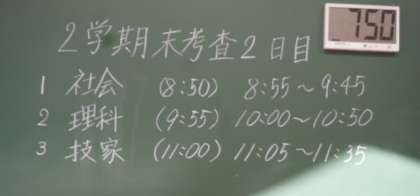 2学期末考査2日目
750
1 社会 (8:50) 8:55～9:45
2 理科 (9:55) 10:00～10:50
3 技家 (11:00) 11:05～11:35